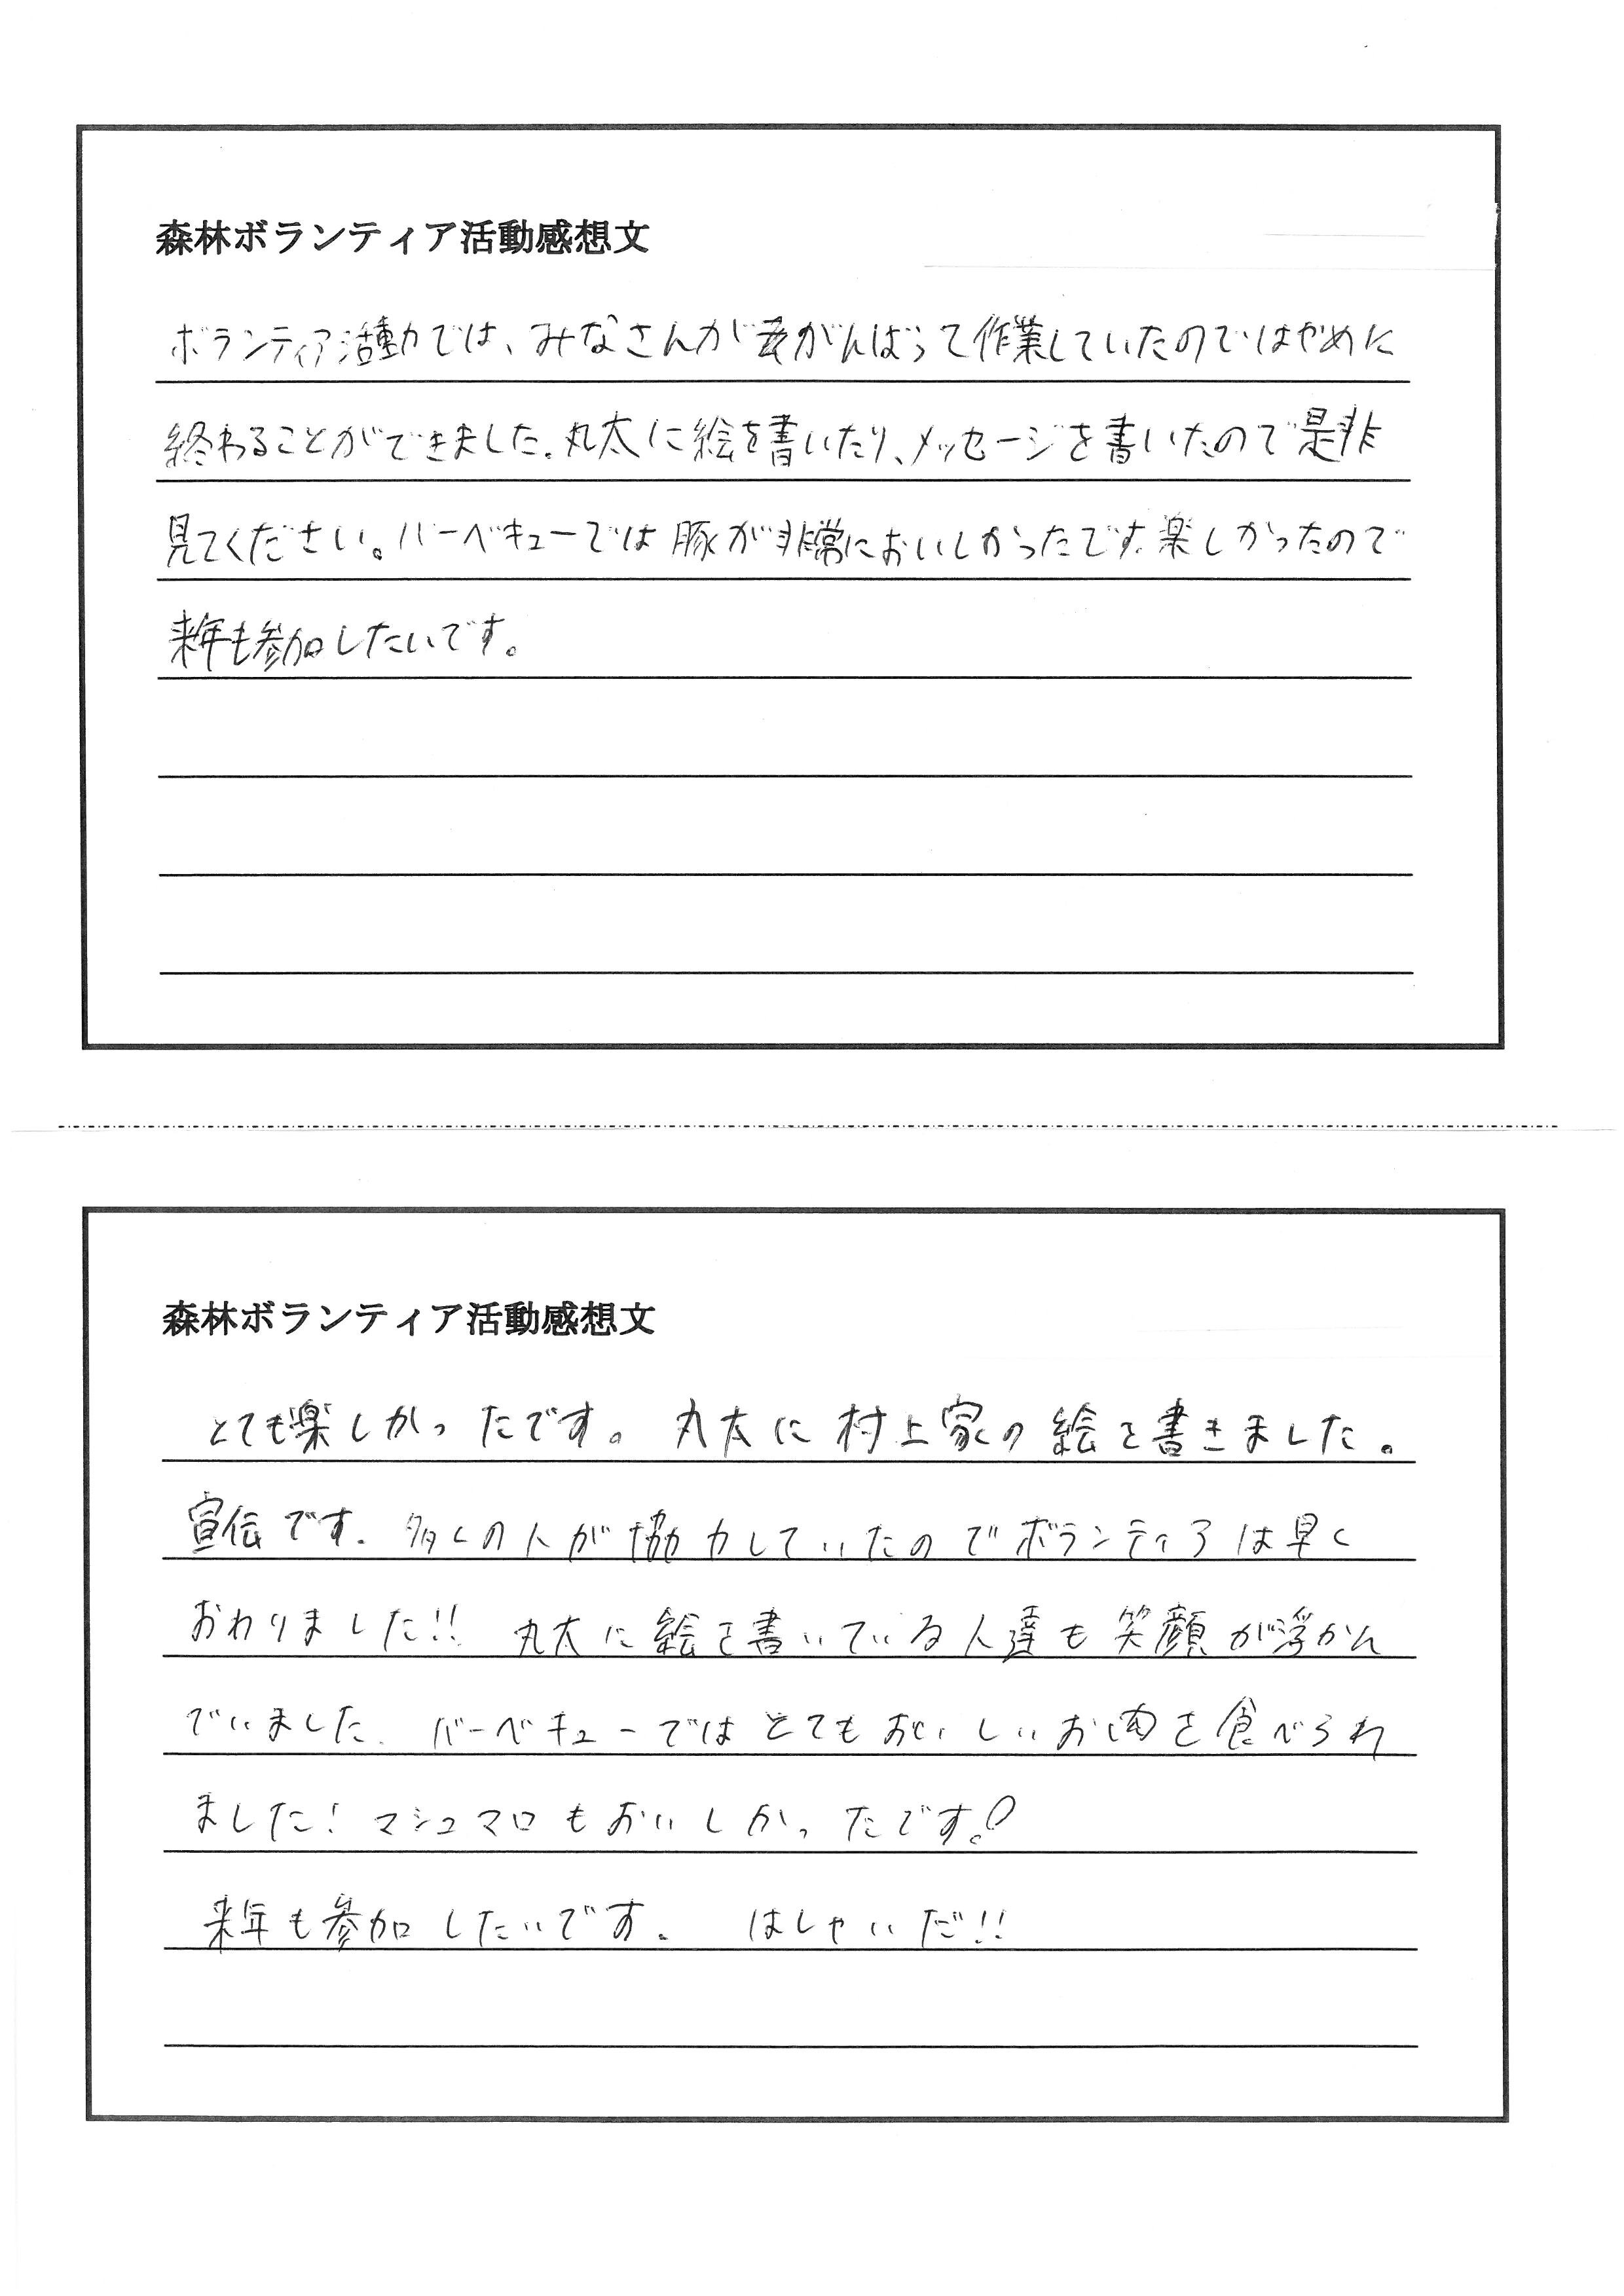 森林ボランティア活動感想文
ボランティア活動では、みなさんががんばって作業していたのではやめに
終わることができました。丸太に絵を書いたり、メッセージを書いたので是非
見てください。バーベキューでは豚が非常においしかったです。楽しかったので
来年も参加したいです。
森林ボランティア活動感想文
とても楽しかったです。丸太に村上家の絵を書きました。
宣伝です。多くの人が協力していたのでボランティアは早く
おわりました!! 丸太に絵を書いている人達も笑顔が浮かん
でいました。バーベキューではとてもおいしいお肉を食べられ
ました! マシュマロもおいしかったです!
来年も参加したいです。 はしゃいだ!!